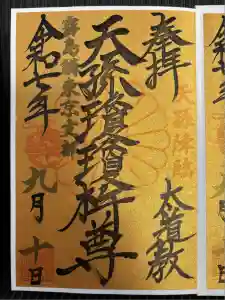 奉拝
天孫降臨
太道教
天孫瓊瓊杵尊
霧島講東京支部
令和七年
九月十日